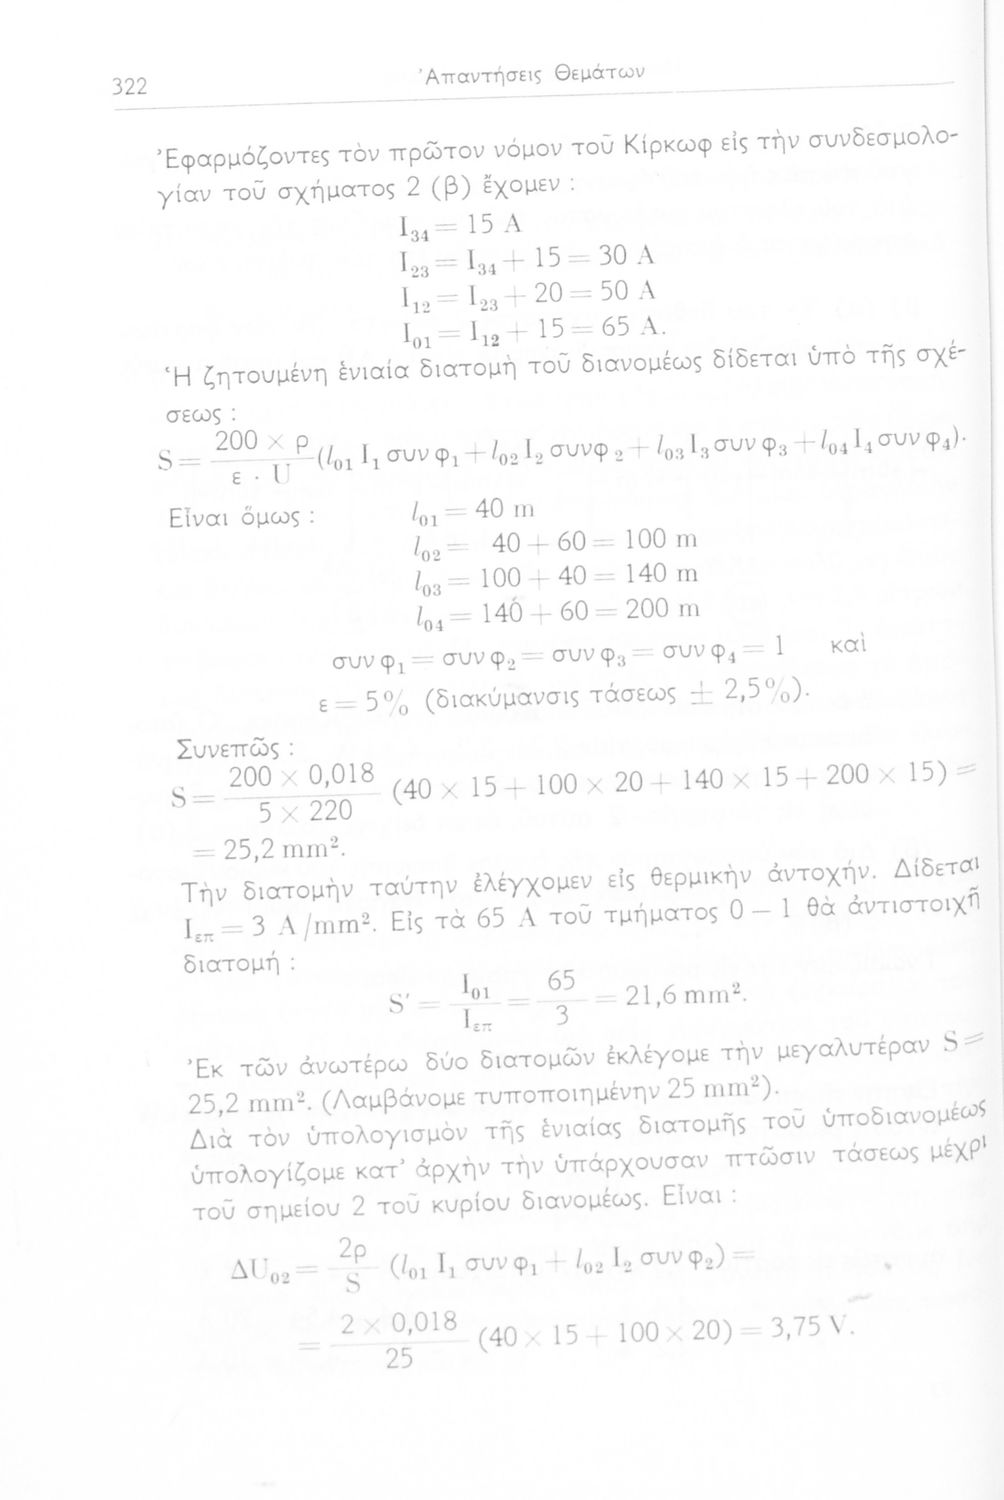 322
Ἀπαντήσεις Θεμάτων
Ἐφαρμόζοντες τὸν πρῶτον νόμον τοῦ Κίρκωφ εἰς τὴν συνδεσμολο-
γίαν τοῦ σχήματος 2 (β) ἔχομεν :
I₃₄ = 15 A
I₂₃ = I₃₄ + 15 = 30 A
I₁₂ = I₂₃ + 20 = 50 A
I₀₁ = I₁₂ + 15 = 65 A.
Ἡ ζητουμένη ἑνιαία διατομὴ τοῦ διανομέως δίδεται ὑπὸ τῆς σχέ-
σεως :
S = \frac{200 × ρ}{ε · U} (l₀₁ I₁ συν φ₁ + l₀₂ I₂ συνφ₂ + l₀₃ I₃ συν φ₃ + l₀₄ I₄ συν φ₄).
Εἶναι ὅμως : l₀₁ = 40 m
l₀₂ = 40 + 60 = 100 m
l₀₃ = 100 + 40 = 140 m
l₀₄ = 140 + 60 = 200 m
συν φ₁ = συν φ₂ = συν φ₃ = συν φ₄ = 1 καὶ
ε = 5% (διακύμανσις τάσεως ± 2,5%).
Συνεπῶς :
S = \frac{200 × 0,018}{5 × 220} (40 × 15 + 100 × 20 + 140 × 15 + 200 × 15) =
= 25,2 mm².
Τὴν διατομὴν ταύτην ἐλέγχομεν εἰς θερμικὴν ἀντοχήν. Δίδεται
Iεπ = 3 A/mm². Εἰς τὰ 65 A τοῦ τμήματος 0 — 1 θὰ ἀντιστοιχῇ
διατομή :
S′ = \frac{I₀₁}{Iεπ} = \frac{65}{3} = 21,6 mm².
Ἐκ τῶν ἀνωτέρω δύο διατομῶν ἐκλέγομε τὴν μεγαλυτέραν S =
25,2 mm². (Λαμβάνομε τυποποιημένην 25 mm²).
Διὰ τὸν ὑπολογισμὸν τῆς ἑνιαίας διατομῆς τοῦ ὑποδιανομέως
ὑπολογίζομε κατ’ ἀρχὴν τὴν ὑπάρχουσαν πτῶσιν τάσεως μέχρι
τοῦ σημείου 2 τοῦ κυρίου διανομέως. Εἶναι :
ΔU₀₂ = \frac{2ρ}{S} (l₀₁ I₁ συν φ₁ + l₀₂ I₂ συν φ₂) =
= \frac{2 × 0,018}{25} (40 × 15 + 100 × 20) = 3,75 V.